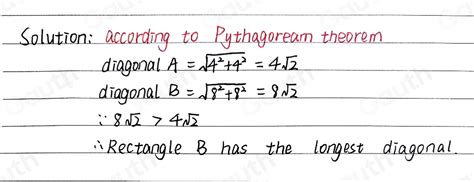 Solution: according to Pythagoream theorem
diagonal A = √4²+4² = 4√2
diagonal B = √8²+8² = 8√2
∵ 8√2 > 4√2
∴ Rectangle B has the longest diagonal.